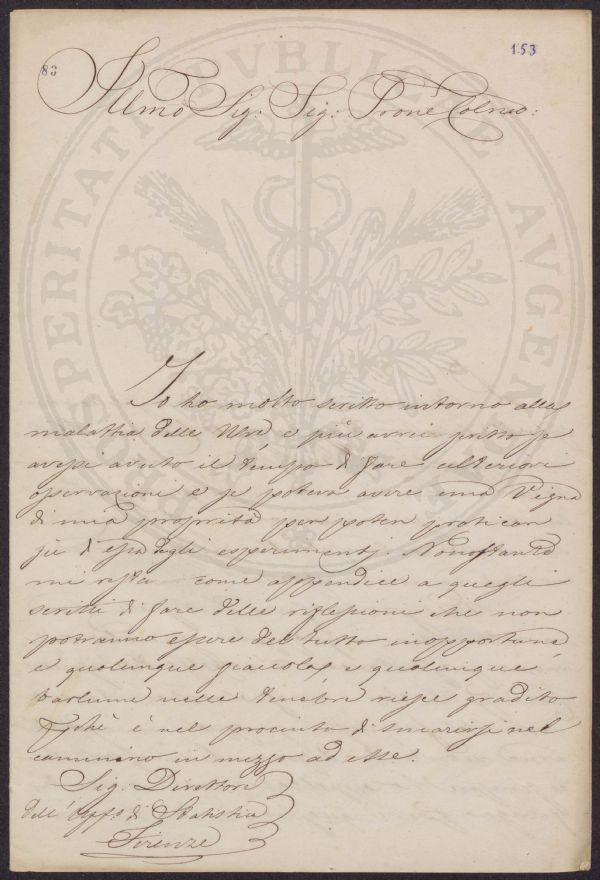 83
153
Illmo Sig: Sig: Prone Colmo:
PROSPERITATI PVBLICAE AVGENDAE
Io ho molto scritto intorno alla
malattia delle Uve e più avrei scritto se
avessi avuto il tempo di fare ulteriori
osservazioni e se poteva avere una Vigna
di mia proprietà per poter pratican
di essa degli esperimenti. Nonostante
mi resta come appendice a quegli
scritti di fare delle riflessioni che non
potranno essere del tutto inopportune
e qualunque fiaccola e qualunque
barlume nelle tenebre riesce gradito
è nel procinto di smarirsi nel
cammino in mezzo ad esse.
Sig. Direttore
dell' Uffo. di Statistia
Firenze